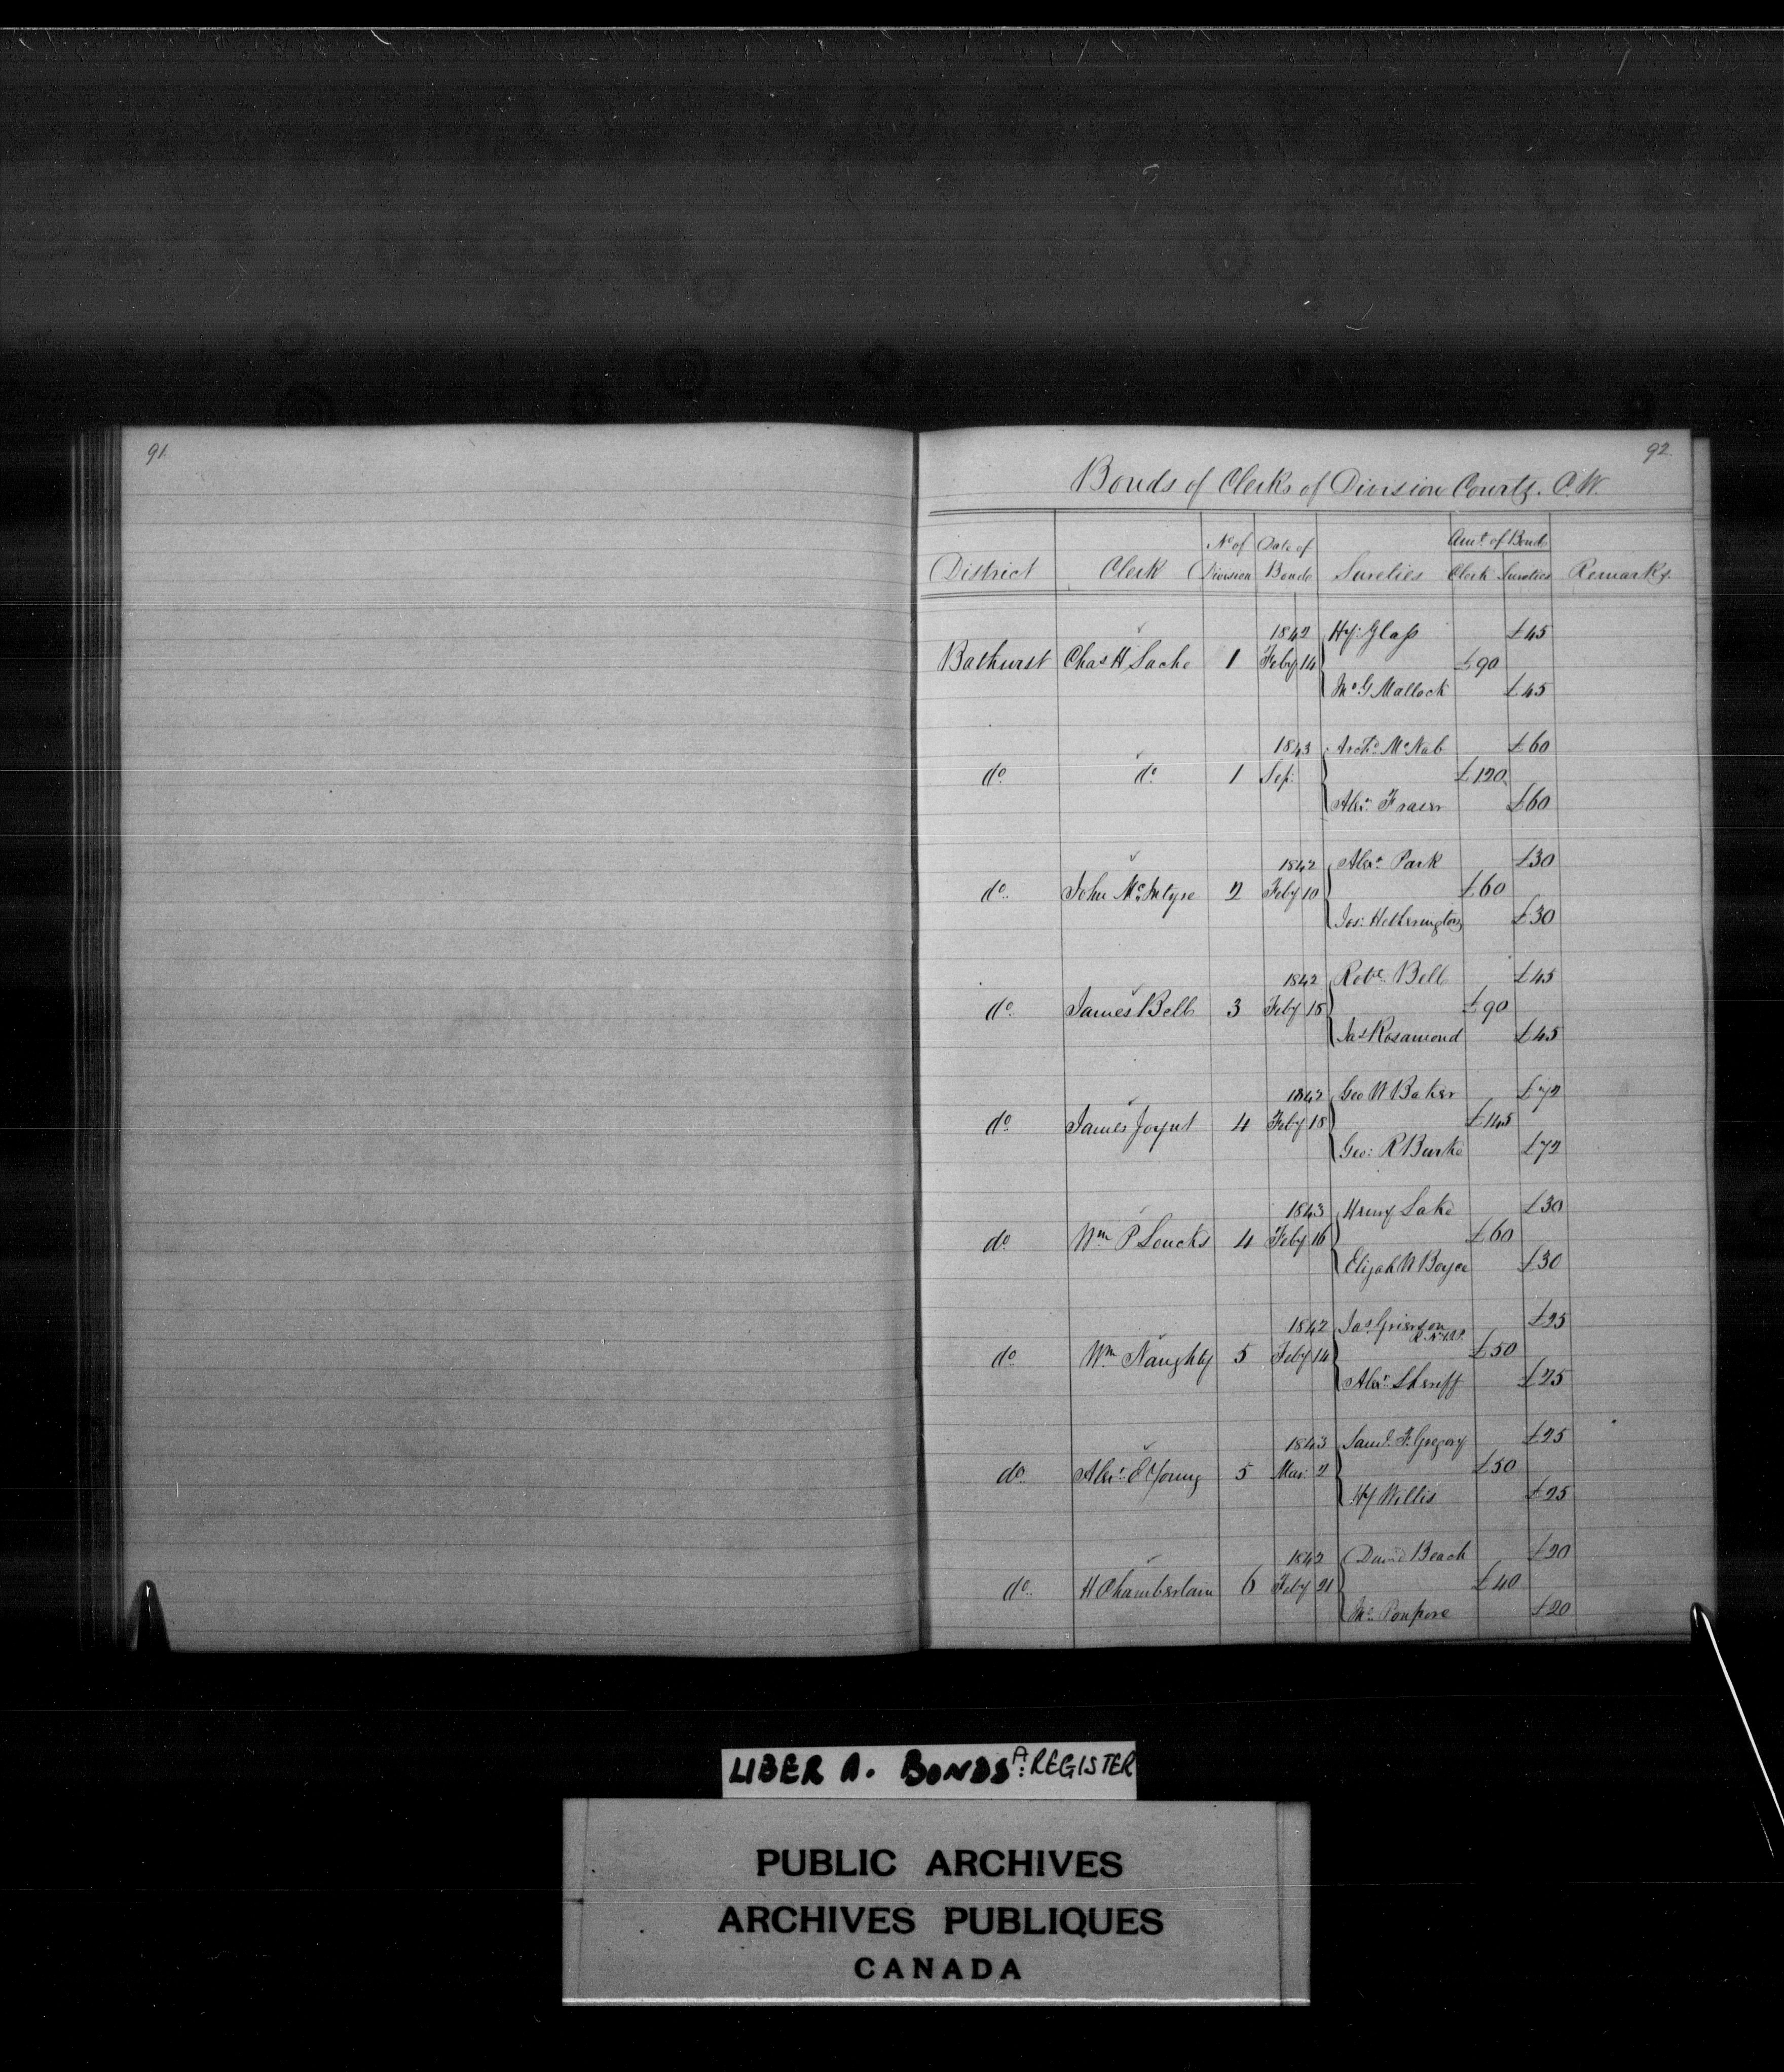 91.
92.
Bonds of Clerks of Division Courts. C.W.
District Clerk No of Division Date of Bonds Sureties Amt of Bonds Clerk Sureties Remarks.
1842 Hy: Glass £45
Bathurst Chas H Sache 1 Feby 14 £90
Jno G Mallock £45
1843 Archd McNab £60
do do 1 Sep: £120
Alexr Fraser £60
1842 Alexr Park £30
do John McIntyre 2 Feby 10 £60
Jos: Hetherington £30
1842 Robt Bell £45
do James Bell 3 Feby 15 £90
Jas Rosamond £45
1842 Geo W Baker £72
do James Joynt 4 Feby 18 £145
Geo: R Burke £72
1843 Henry Lake £30
do Wm P Loucks 4 Feby 16 £60
Elijah W Boyce £30
1842 Jas Grierson R.N. £25
do Wm Naughty 5 Feby 14 £50
Alexr Sheriff £25
1843 Saml F. Gregory £25
do Alexr E Young 5 Mar: 2 £50
Hy Willis £25
1842 David Beach £20
do H Chamberlain 6 Feby 21 £40
Jno Poupore £20
LIBER A. BONDS A: REGISTER
PUBLIC ARCHIVES
ARCHIVES PUBLIQUES
CANADA